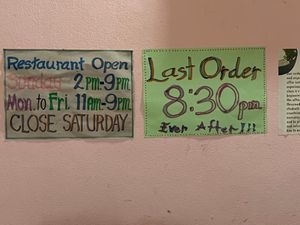 Restaurant Open
Sunday 2pm-9pm
Mon. to Fri. 11am-9pm
CLOSE SATURDAY
Last Order
8:30pm
Ever After!!!